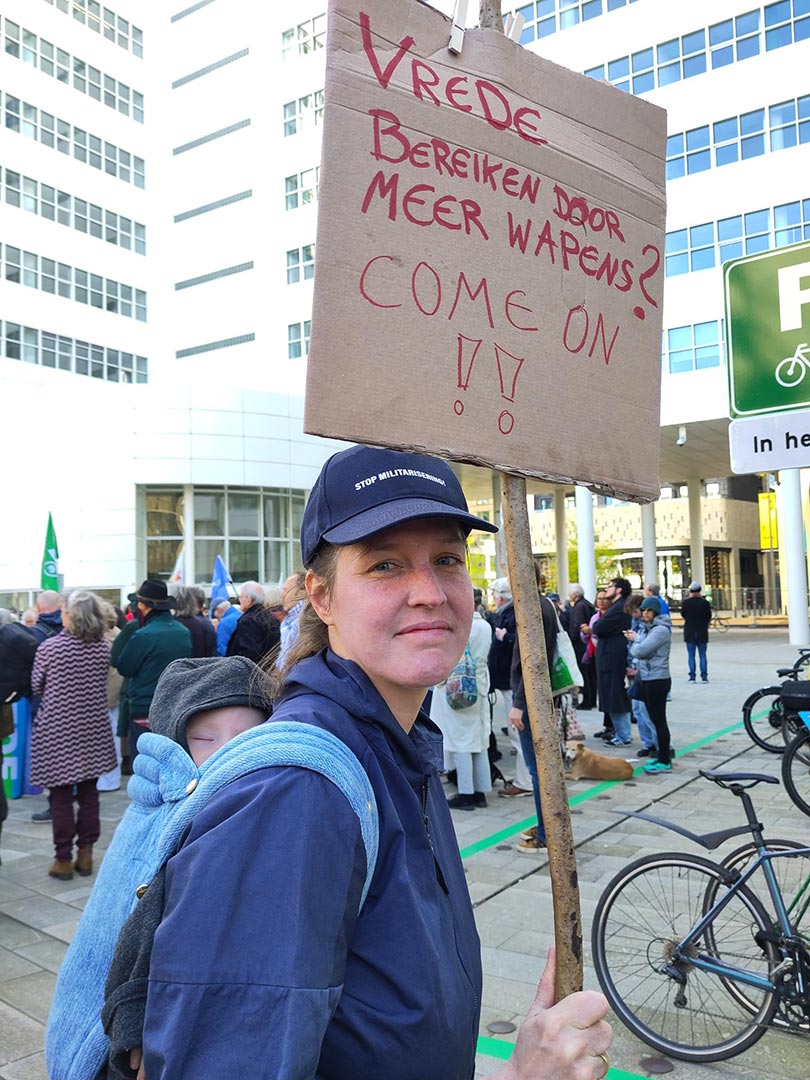 VREDE
BEREIKEN DOOR
MEER WAPENS?
COME ON
!!
STOP MILITARISERING!
P
In he